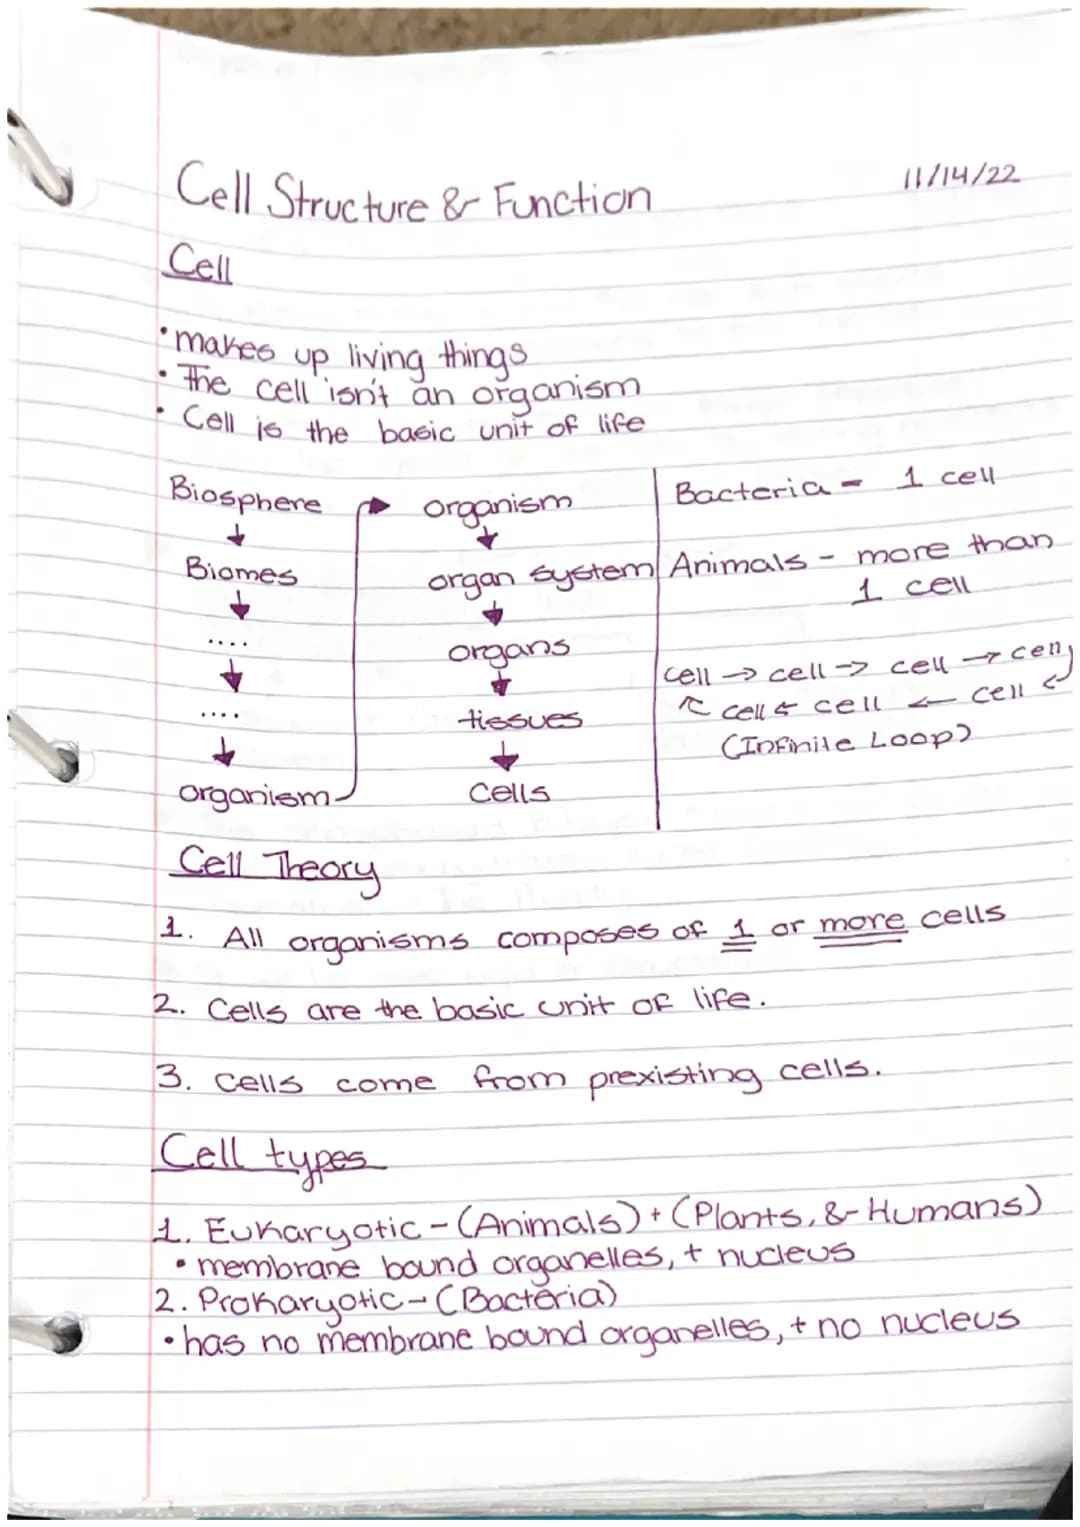 Cell Structure & Function
11/14/22
Cell
• makes up living things
• The cell isn't an organism
• Cell is the basic unit of life
Biosphere
↓
Biomes
↓
....
↓
....
↓
organism
organism
↓
organ system
↓
organs
↓
tissues
↓
Cells
Bacteria - 1 cell
Animals - more than
1 cell
cell → cell → cell → cell
↖ cell ← cell ← cell ↲
(Infinite Loop)
Cell Theory
1. All organisms composes of 1 or more cells
2. Cells are the basic unit of life.
3. Cells come from prexisting cells.
Cell types
1. Eukaryotic - (Animals) + (Plants, & Humans)
• membrane bound organelles, + nucleus
2. Prokaryotic - (Bacteria)
• has no membrane bound organelles, + no nucleus